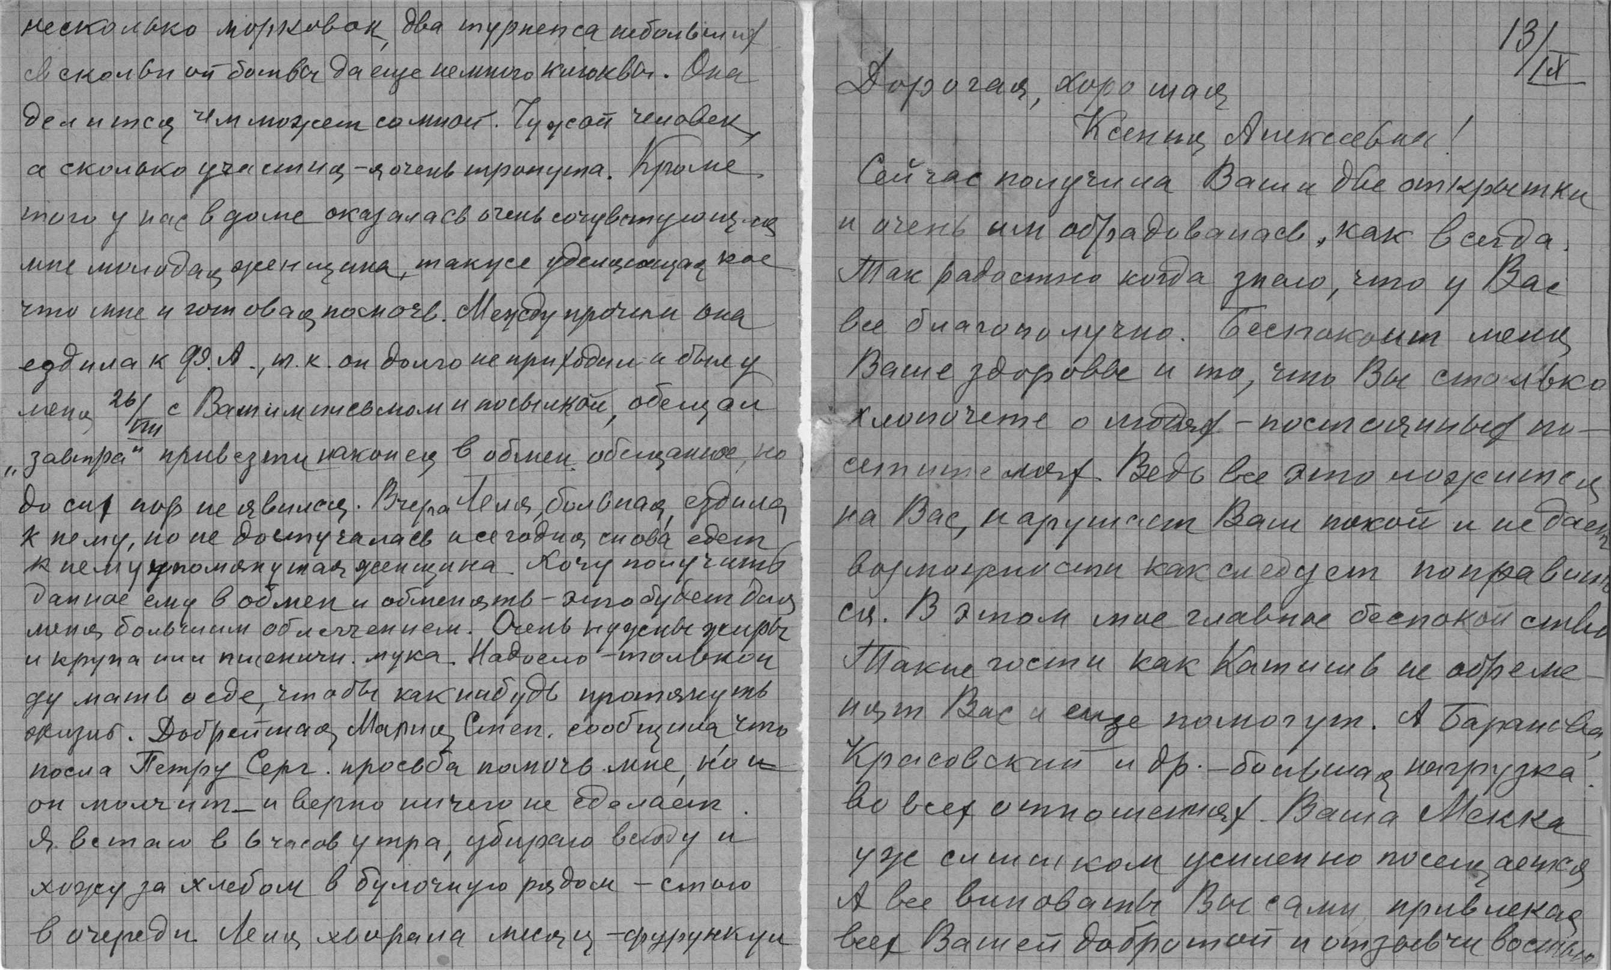 несколько морковок, два турнепса небольших
со скользкой ботвы да еще немного клюквы. Она
делится чем может со мной. Чужой человек,
а сколько участия – я очень тронута. Кроме
того у нас в доме оказалась очень сочувствующая
мне молодая женщина, также уделяющая кое
что мне и готовая помочь. Между прочим она
ездила к Ф.А., т.к. он долго не приходил и был у
меня 26/VIII с Вашим письмом и посылкой, обещал
„завтра" привезти наконец в обмен обещанное, но
до сих пор не явился. Вчера Леля, больная, ездила
к нему, но не достучалась и сегодня снова едет
к нему упомянутая женщина. Хочу получить
данное ему в обмен и обменять – это будет для
меня большим облегчением. Очень нужны жиры
и крупа или пшеничн. мука. Надоело – только и
думать о еде, чтобы как нибудь протянуть
жизнь. Добрейшая Мария Степ. сообщила что
посла Петру Серг. просьба помочь мне, но и
он молчит – и верно ничего не сделает.
Я встаю в 6 часов утра, убираю всюду и
хожу за хлебом в булочную рядом – стою
в очереди. Леля хворала месяц – фурункул
13/IX
Дорогая, хорошая
Ксения Алексеевна!
Сейчас получила Ваши две открытки
и очень им обрадовалась, как всегда.
Так радостно когда знаю, что у Вас
все благополучно. Беспокоит меня
Ваше здоровье и то, что Вы столько
хлопочете о людях – постоянных по-
сетителях. Ведь все это ложится
на Вас, нарушает Ваш покой и не дает
возможности как следует поправить
ся. В этом мое главное беспокойство
Такие гости как Катишь не обреме-
нят Вас и еще помогут. А Баранова,
Красовский и др. – большая нагрузка
во всех отношениях. Ваша Мекка
уж слишком усиленно посещается
А все виноваты Вы сами привлекая
всех Вашей добротой и отзывчивостью